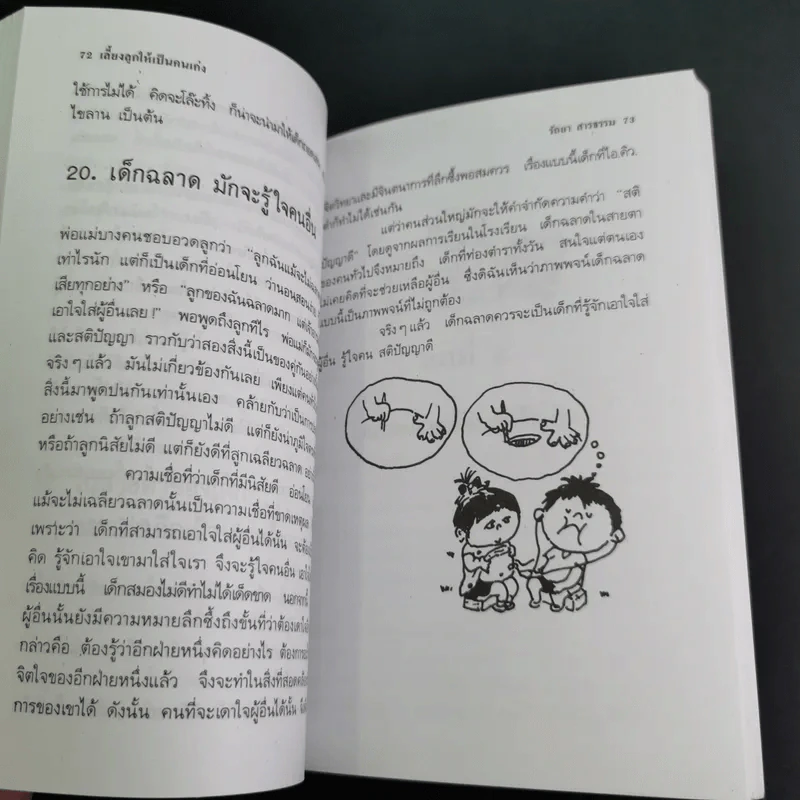 72 เลี้ยงลูกให้เป็นคนเก่ง
ใช้การไม่ได้ คิดจะโล๊ะทิ้ง ก็น่าจะนำมาให้เด็ก
ไขลาน เป็นต้น
20. เด็กฉลาด มักจะรู้ใจคนอื่น
พ่อแม่บางคนชอบอวดลูกว่า "ลูกฉันแม้จะไม่
เท่าไรนัก แต่ก็เป็นเด็กที่อ่อนโยน ว่านอนสอนง่าย
เสียทุกอย่าง" หรือ "ลูกของฉันฉลาดมาก แต่
เอาใจใส่ผู้อื่นเลย !" พอพูดถึงลูกทีไร พ่อแม่
และสติปัญญา ราวกับว่าสองสิ่งนี้เป็นของคู่กัน
จริง ๆ แล้ว มันไม่เกี่ยวข้องกันเลย เพียงแต่คน
สิ่งนี้มาพูดปนกันเท่านั้นเอง คล้ายกับว่าเป็นการ
อย่างเช่น ถ้าลูกสติปัญญาไม่ดี แต่ก็ยังน่าภูมิใจ
หรือถ้าลูกนิสัยไม่ดี แต่ก็ยังดีที่ลูกเฉลียวฉลาด
ความเชื่อที่ว่าเด็กที่มีนิสัยดี อ่อนโยน
แม้จะไม่เฉลียวฉลาดนั้นเป็นความเชื่อที่ขาดเหตุผล
เพราะว่า เด็กที่สามารถเอาใจใส่ผู้อื่นได้นั้น จะต้อง
คิด รู้จักเอาใจเขามาใส่ใจเรา จึงจะรู้ใจคนอื่น
เรื่องแบบนี้ เด็กสมองไม่ดีทำไม่ได้เด็ดขาด นอกจากนี้
ผู้อื่นนั้นยังมีความหมายลึกซึ้งถึงขั้นที่ว่าต้องเดาใจ
กล่าวคือ ต้องรู้ว่าอีกฝ่ายหนึ่งคิดอย่างไร ต้องการ
จิตใจของอีกฝ่ายหนึ่งแล้ว จึงจะทำในสิ่งที่สอดคล้อง
การของเขาได้ ดังนั้น คนที่จะเดาใจผู้อื่นได้นั้น
รัถยา สารธรรม 73
จิตวิทยาและมีจินตนาการที่ลึกซึ้งพอสมควร เรื่องแบบนี้เด็กที่ไอ.คิว.
ต่ำก็ทำไม่ได้เช่นกัน
แต่ว่าคนส่วนใหญ่มักจะให้คำจำกัดความคำว่า "สติ
ปัญญาดี" โดยดูจากผลการเรียนในโรงเรียน เด็กฉลาดในสายตา
ของคนทั่วไปจึงหมายถึง เด็กที่ท่องตำราทั้งวัน สนใจแต่ตนเอง
ไม่เคยคิดที่จะช่วยเหลือผู้อื่น ซึ่งดิฉันเห็นว่าภาพพจน์เด็กฉลาด
แบบนี้เป็นภาพพจน์ที่ไม่ถูกต้อง
จริง ๆ แล้ว เด็กฉลาดควรจะเป็นเด็กที่รู้จักเอาใจใส่
ผู้อื่น รู้ใจคน สติปัญญาดี